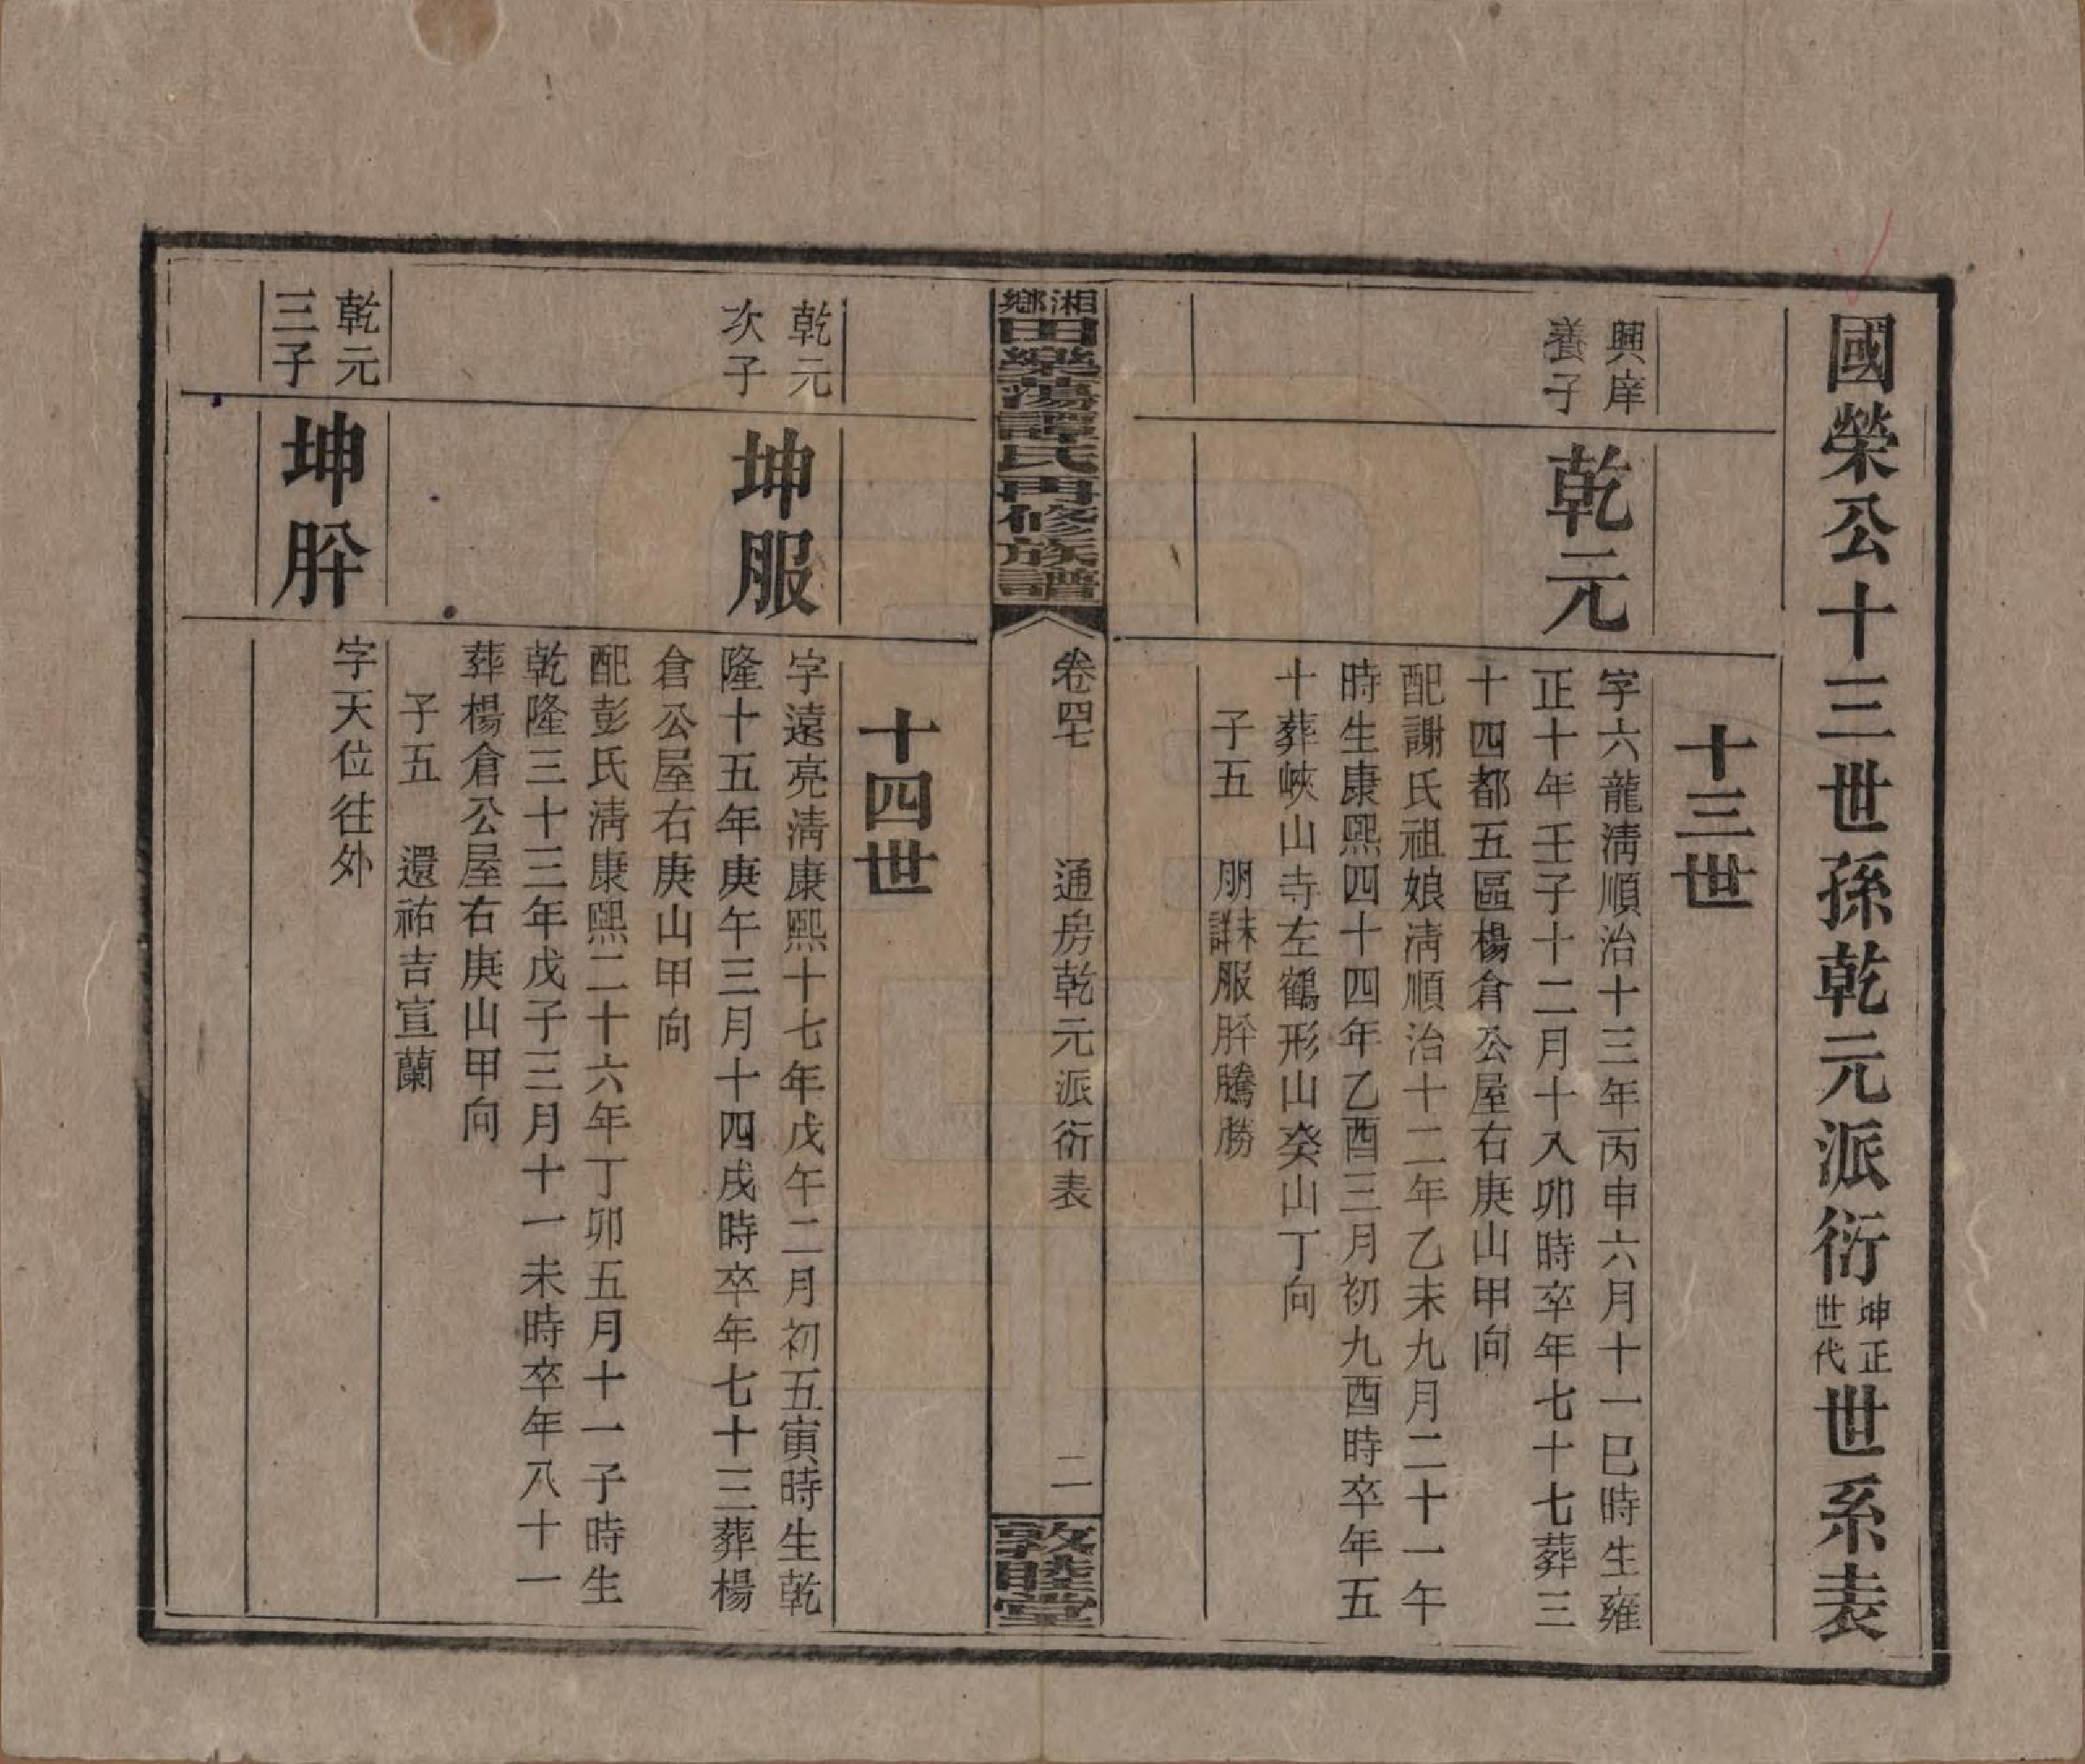 國榮公十三世孫乾元派衍坤正世代世系表
十三世
興庠
養子
乾元
字六龍淸順治十三年丙申六月十一巳時生雍
正十年壬子十二月十八卯時卒年七十七葬三
十四都五區楊倉公屋右庚山甲向
配謝氏祖娘淸順治十二年乙未九月二十一午
時生康熙四十四年乙酉三月初九酉時卒年五
十葬峽山寺左鶴形山癸山丁向
子五 朋未詳服肸騰勝
湘鄉田樂蕩譚氏再修族譜
卷四七
通房乾元派衍表
二
敦睦堂
十四世
乾元
次子
坤服
字遠亮淸康熙十七年戊午二月初五寅時生乾
隆十五年庚午三月十四戌時卒年七十三葬楊
倉公屋右庚山甲向
配彭氏淸康熙二十六年丁卯五月十一子時生
乾隆三十三年戊子三月十一未時卒年八十一
葬楊倉公屋右庚山甲向
子五 還祐吉宣蘭
乾元
三子
坤肸
字天位往外